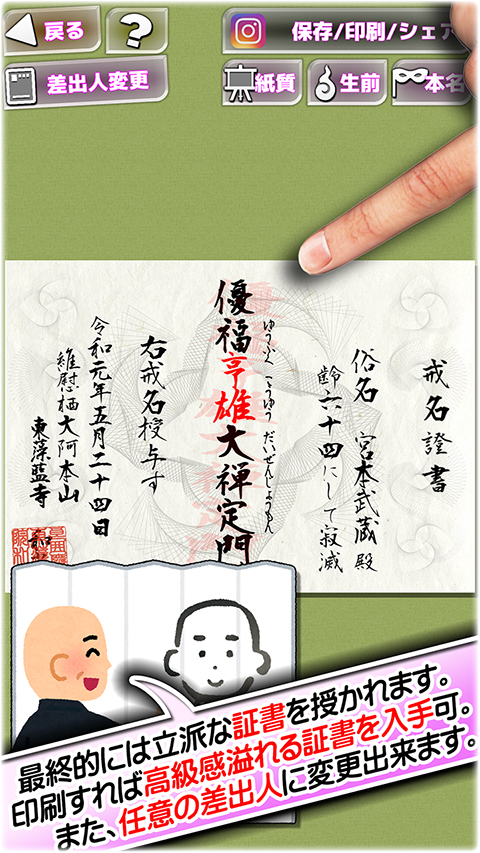 戻る
?
保存/印刷/シェア
差出人変更
紙質
生前
本名
戒名證書
俗名 宮本武蔵殿
齢六十四にして寂滅
ゆうふく こうゆう だいぜんじょうもん
優福亨雄大禅定門
右戒名授与す
令和元年五月二十四日
維慰栖大阿本山
東藻監寺
最終的には立派な証書を授かれます。
印刷すれば高級感溢れる証書を入手可。
また、任意の差出人に変更出来ます。